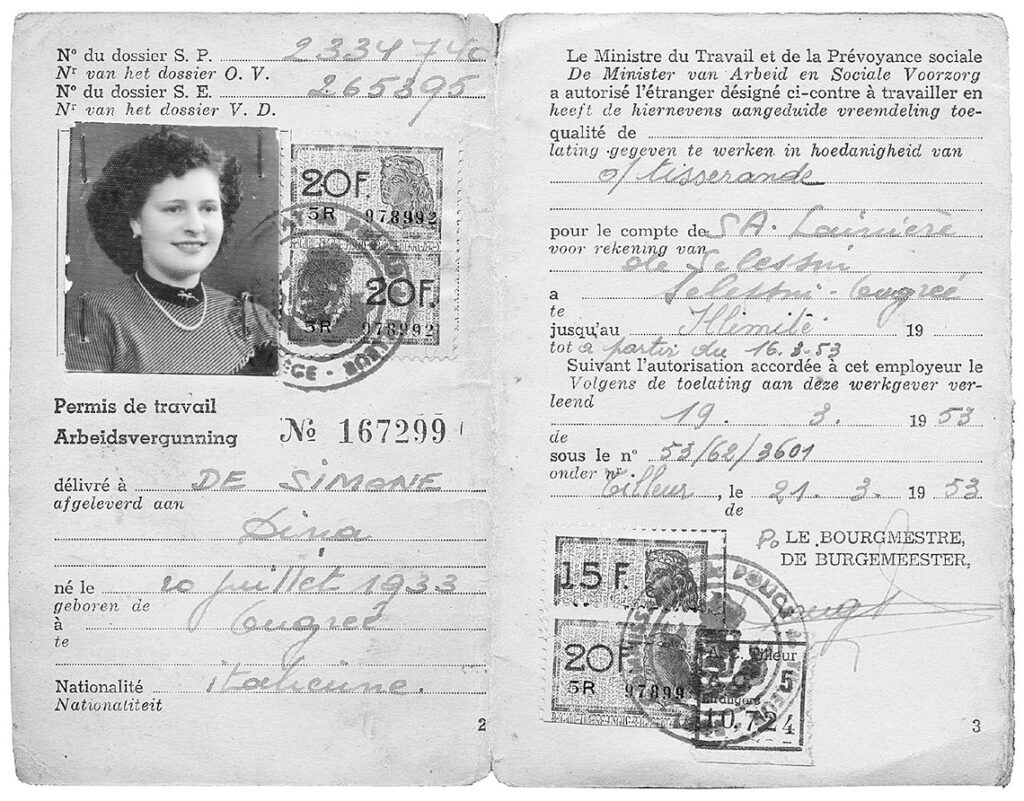 Nº du dossier S. P. 2334740
Nr van het dossier O. V.
Nº du dossier S. E. 265395
Nr van het dossier V. D.
20F.
5R 978992
20F.
5R 978992
Permis de travail
Arbeidsvergunning
Nº 167299
délivré à DE SIMONE
afgeleverd aan
Dina
né le 20 juillet 1933
geboren de
à Ougrée
te
Nationalité italienne.
Nationaliteit
2
Le Ministre du Travail et de la Prévoyance sociale
De Minister van Arbeid en Sociale Voorzorg
a autorisé l'étranger désigné ci-contre à travailler en
heeft de hiernevens aangeduide vreemdeling toe-
qualité de
lating gegeven te werken in hoedanigheid van
o/ tisserande
pour le compte de SA. Lainière
voor rekening van
de Sclessin
a Sclessin-Ougrée
te
jusqu'au Illimité 19
tot à partir du 16.3-53
Suivant l'autorisation accordée à cet employeur le
Volgens de toelating aan deze werkgever ver-
leend
19. 3. 19 53
de
sous le nº 53/62/3601
onder nr.
Tilleur, le 21. 3. 19 53
de
Po LE BOURGMESTRE,
DE BURGEMEESTER,
15 F.
20F.
5R 97899
A. C. Tilleur
A.C. 5
Etrangers
10,724
3